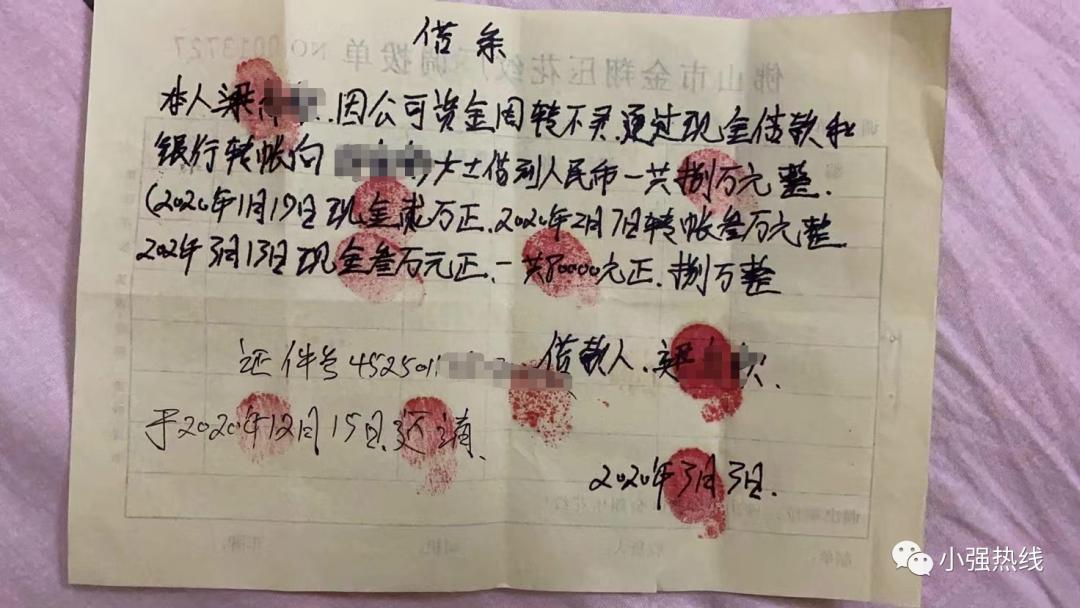 佛山市金翔压花纹 调拨单 NO 0013727
借条
本人梁 因公司资金周转不灵.通过现金借款和
银行转帐向 女士借到人民币一共捌万元整.
(2020年1月19日现金贰万正.2020年2月7日转帐叁万元整
2020年3月13日现金叁万元正.一共80000元正.捌万整
证件号452501 借款人.梁
于2020年12月15日还清.
2020年3月3日.
小强热线